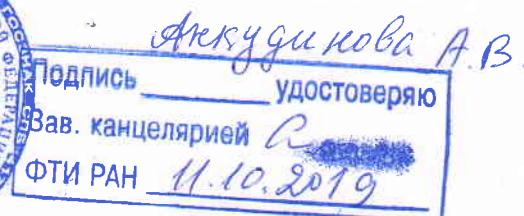 Анкудинова А.В.
Подпись удостоверяю
Зав. канцелярией
ФТИ РАН 11.10.2019